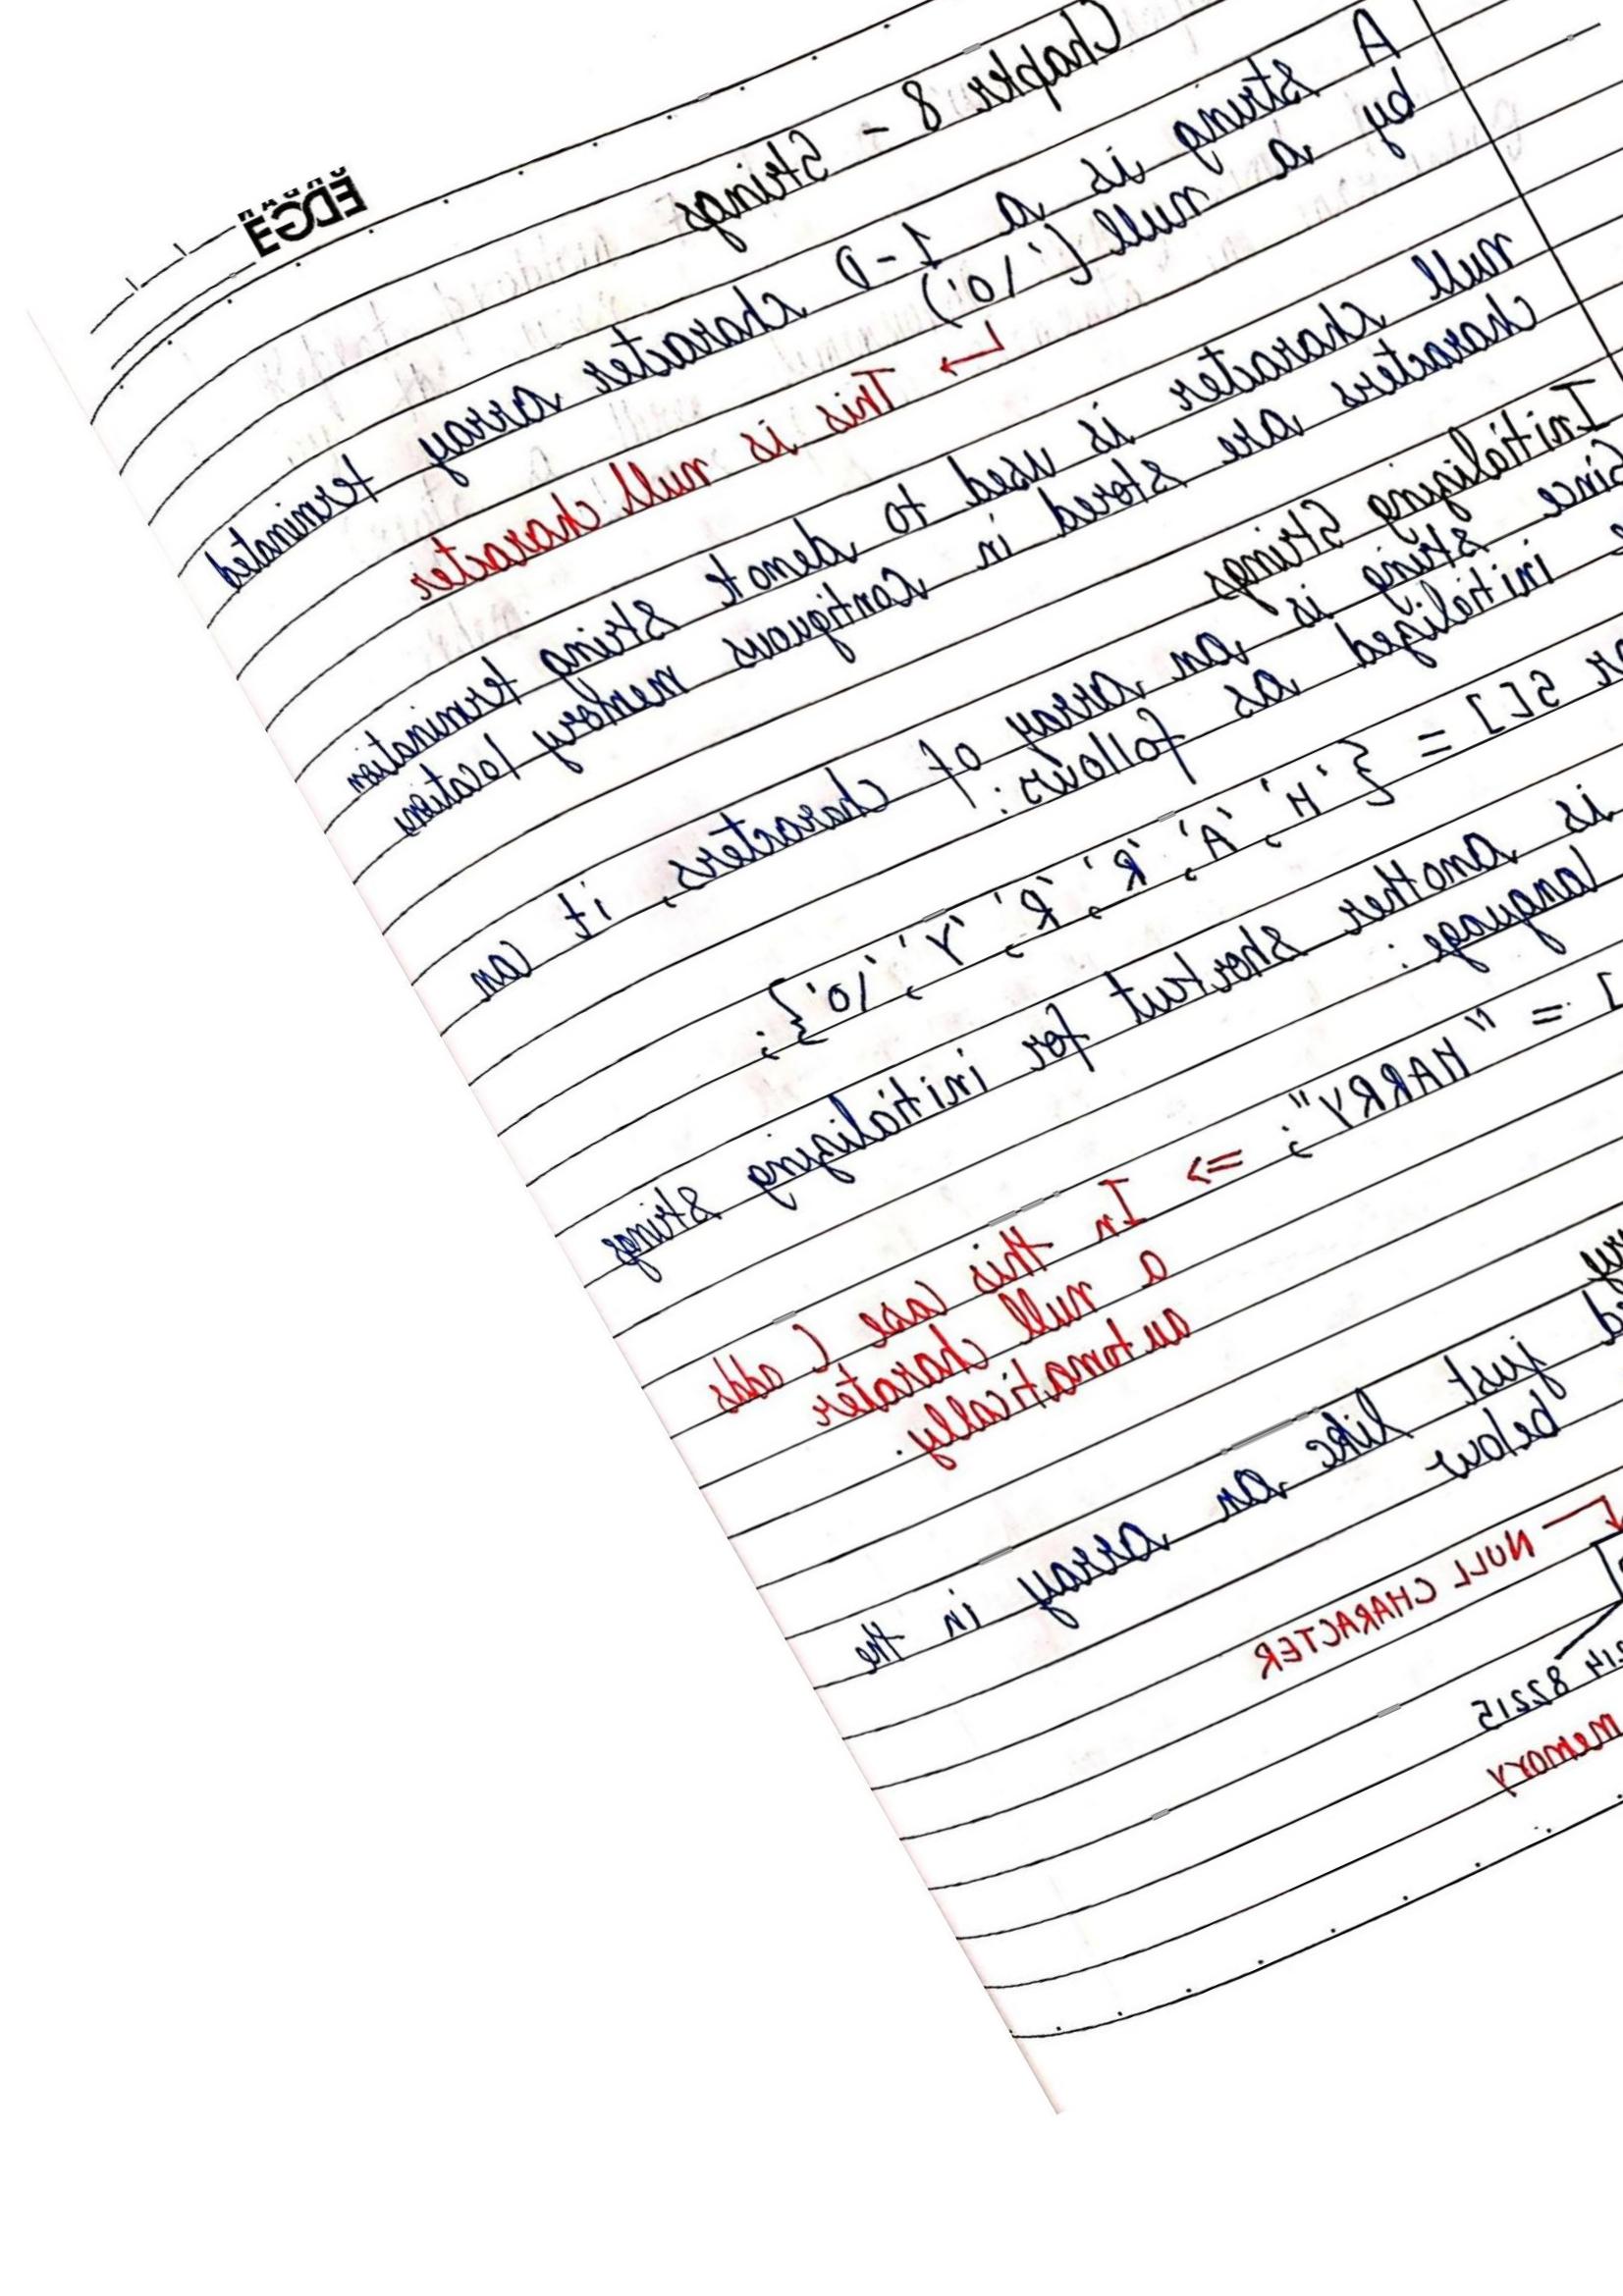 Chapter 8 - Strings
A string is a 1-D character array terminated
by a null ('\0')
This is null character
null character is used to denote string termination
characters are stored in contiguous memory locations
Initializing Strings
Since string is an array of characters, it can
initialized as follows:
S[] = {'H', 'A', 'R', 'R', 'Y', '\0'};
is another shortcut for initializing strings
language:
] = "HARRY"; => In this case C adds
a null charater
automatically.
just like an array in the
below
NULL CHARACTER
82215
memory